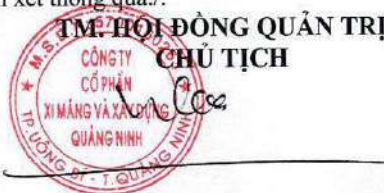 xét thông qua./.
TM. HỘI ĐỒNG QUẢN TRỊ
CHỦ TỊCH
CÔNG TY
CỔ PHẦN
XI MĂNG VÀ XÂY DỰNG
QUẢNG NINH
TP. UÔNG BÍ - T. QUẢNG NINH